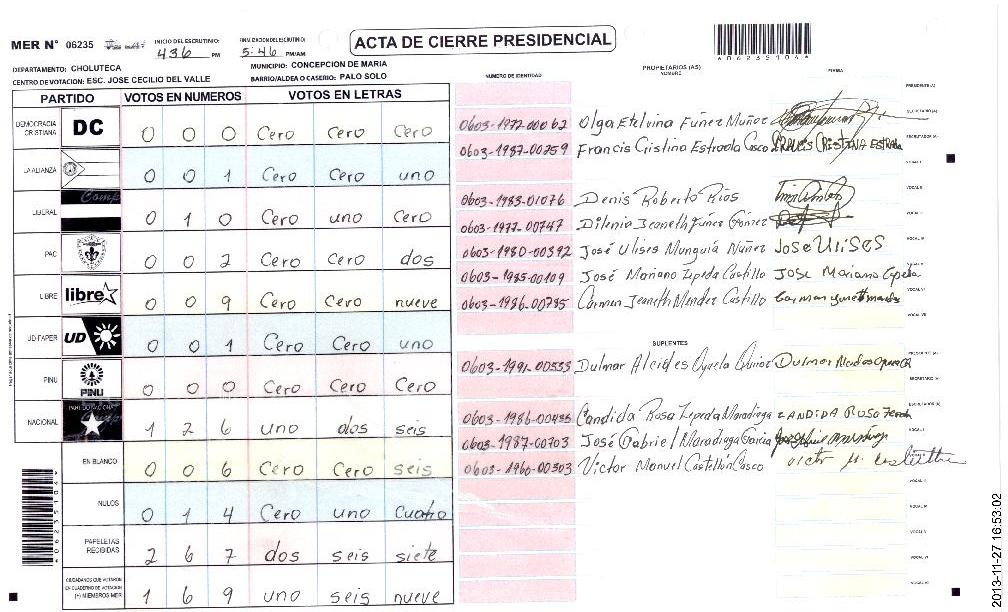 MER N° 06235 INICIO DEL ESCRUTINIO: 436 PM FINALIZACION DEL ESCRUTINIO: 5:46 PM/AM ACTA DE CIERRE PRESIDENCIAL
DEPARTAMENTO: CHOLUTECA MUNICIPIO: CONCEPCION DE MARIA
CENTRO DE VOTACION: ESC. JOSE CECILIO DEL VALLE BARRIO/ALDEA O CASERIO: PALO SOLO
NUMERO DE IDENTIDAD PROPIETARIOS (AS) NOMBRE FIRMA
PARTIDO VOTOS EN NUMEROS VOTOS EN LETRAS
DEMOCRACIA CRISTIANA DC 0 0 0 Cero Cero Cero
LA ALIANZA 0 0 1 Cero Cero uno
LIBERAL 0 1 0 Cero uno Cero
PAC 0 0 2 Cero Cero dos
LIBRE libre 0 0 9 Cero Cero nueve
UD-FAPER UD 0 0 1 Cero Cero uno
PINU PINU 0 0 0 Cero Cero Cero
NACIONAL 1 2 6 uno dos seis
EN BLANCO 0 0 6 Cero Cero seis
NULOS 0 1 4 Cero uno Cuatro
PAPELETAS RECIBIDAS 2 6 7 dos seis siete
CIUDADANOS QUE VOTARON EN CUADERNO DE VOTACION (+) MIEMBROS MER 1 6 9 uno seis nueve
0603-1977-00062 Olga Etelvina Fúnez Muñoz
0603-1987-00259 Francis Cristina Estrada Casco
0603-1983-01076 Denis Roberto Rios
0603-1977-00747 Dilenia Jeaneth Funez Gómez
0603-1980-00392 José Ulises Munguia Nuñez JOSE ULISES
0603-1985-00109 José Mariano Zepeda Castillo JOSE Mariano
0603-1986-00785 Carmen Jeaneth Mendez Castillo
SUPLENTES
0603-1991-00533 Dulmar Alcides
0603-1986-00435 Candida Rosa Zepeda Maradiaga
0603-1987-00703 José Gabriel Maradiaga Garcia
0603-1960-00303 Victor Manuel Castellón Casco
2013-11-27 16:53:02